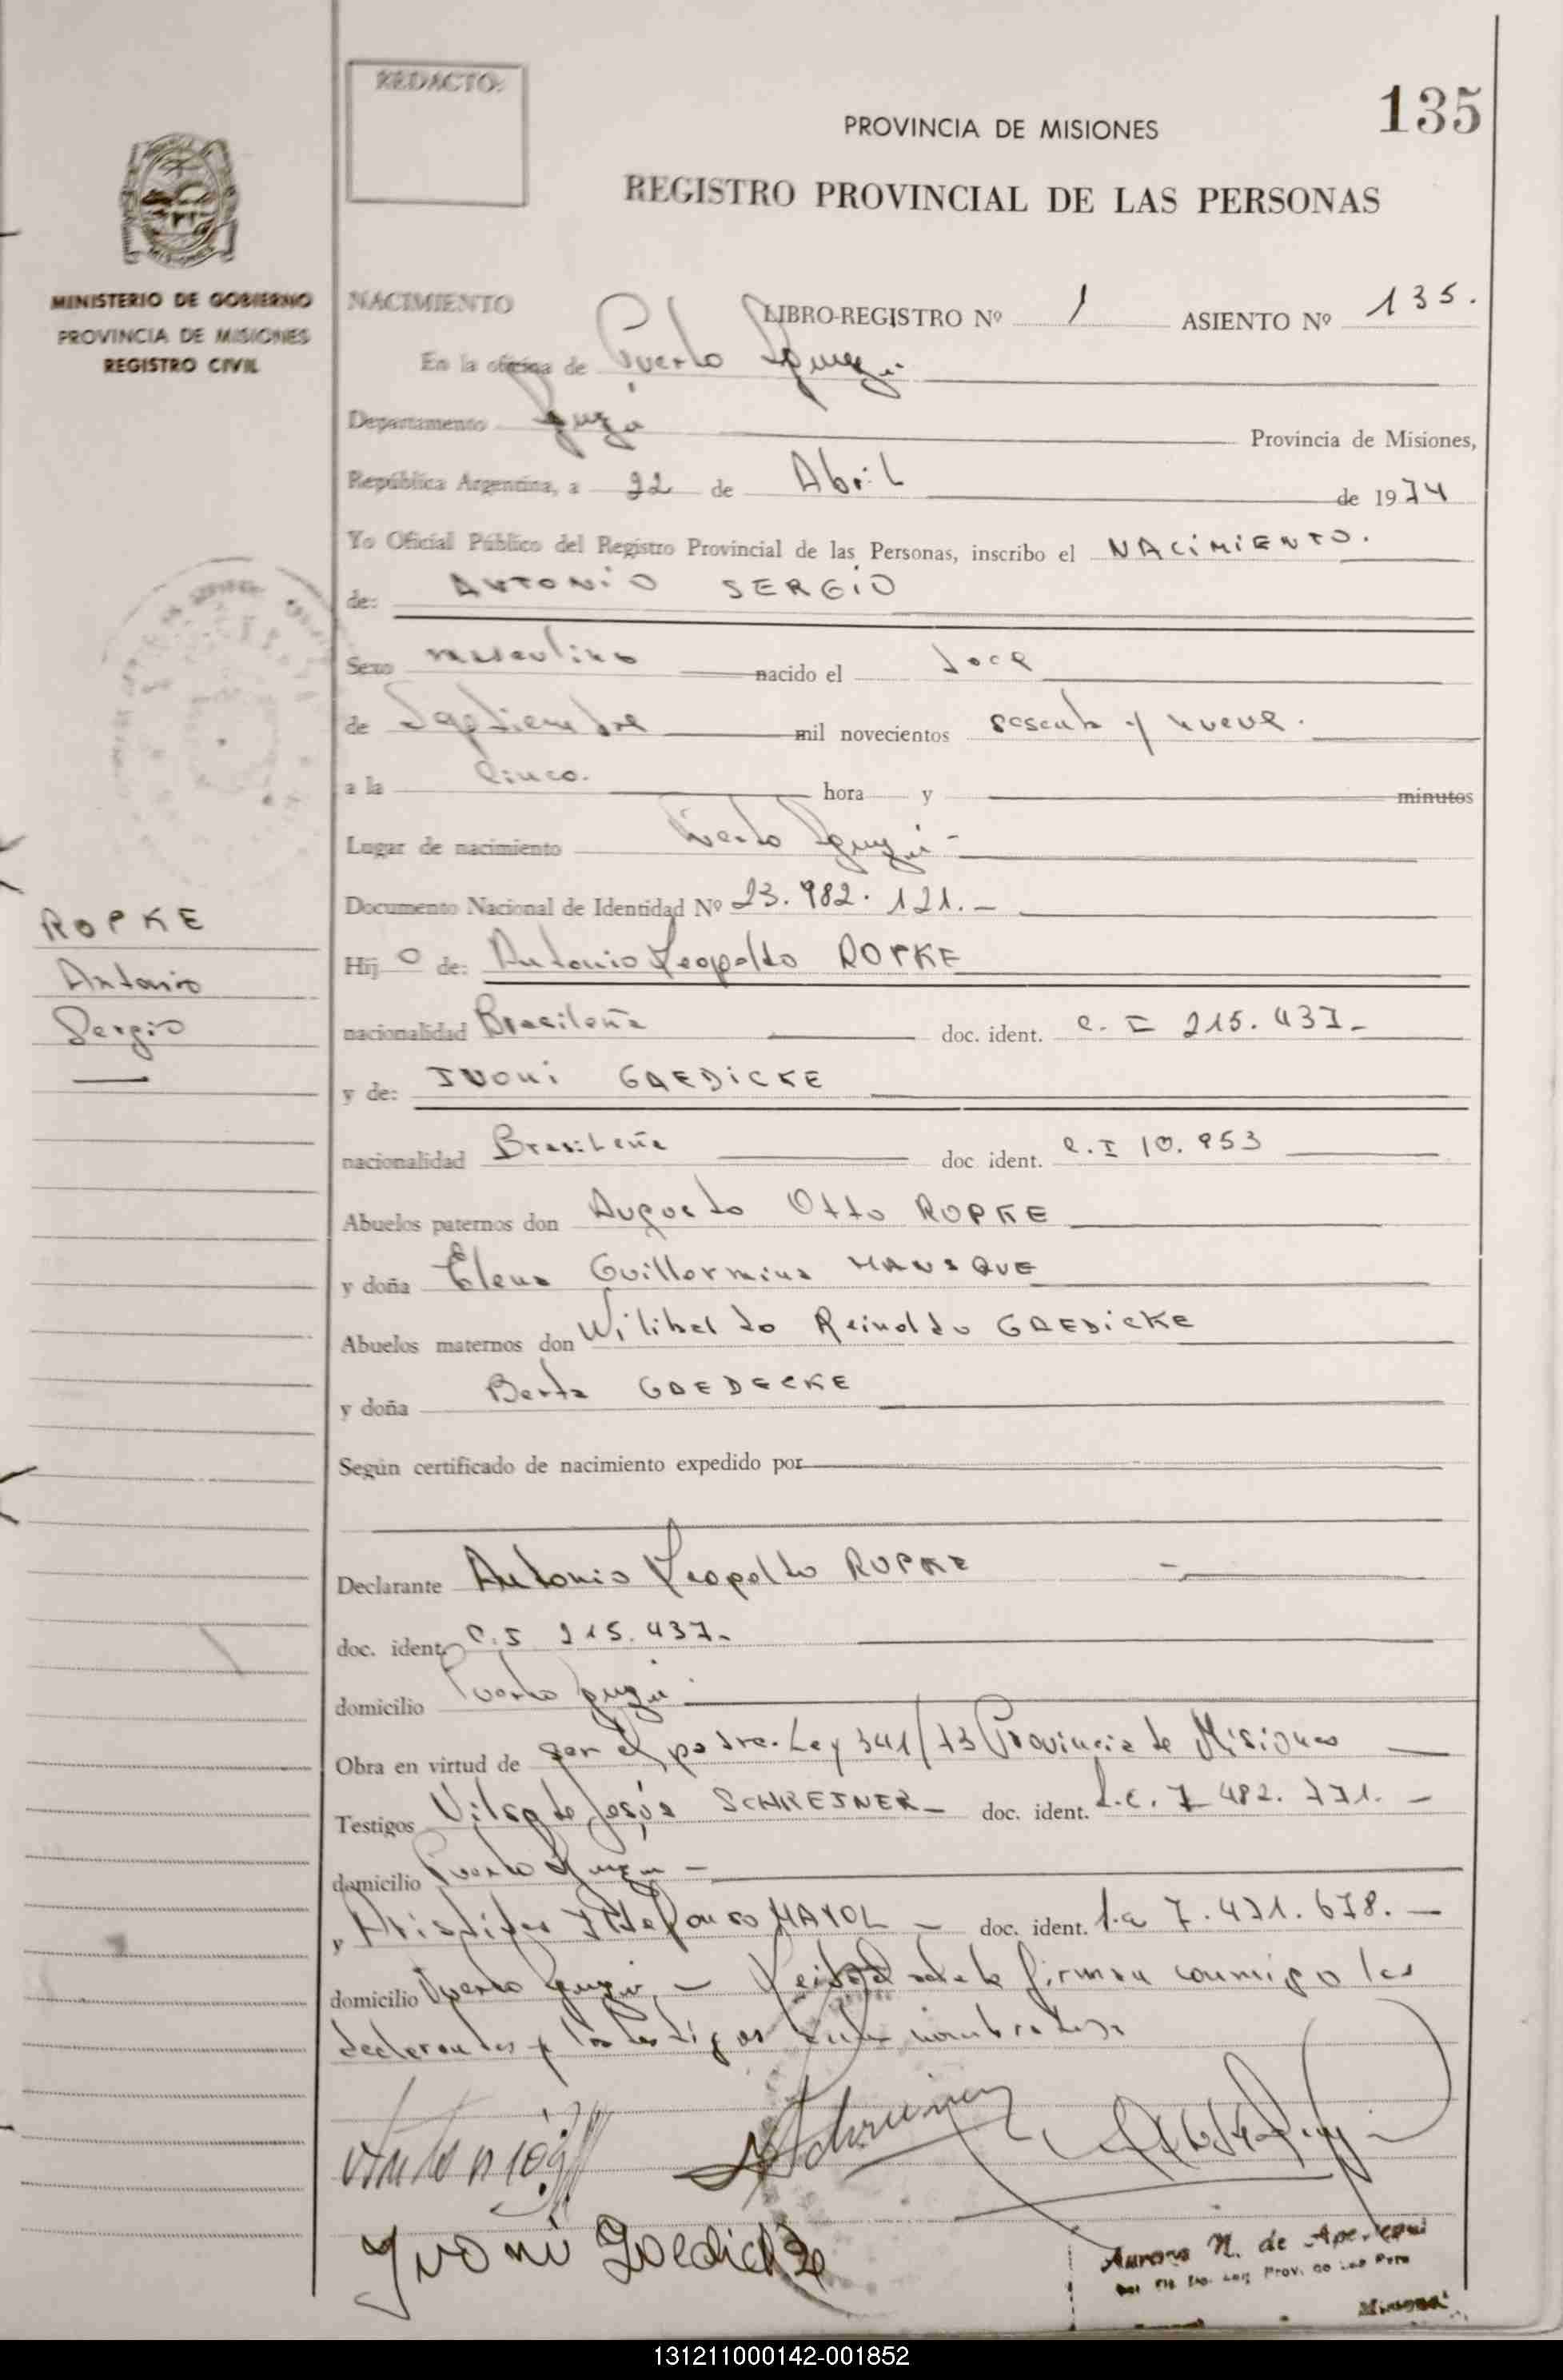 REDACTO:
135
PROVINCIA DE MISIONES
REGISTRO PROVINCIAL DE LAS PERSONAS
MINISTERIO DE GOBIERNO
PROVINCIA DE MISIONES
REGISTRO CIVIL
NACIMIENTO LIBRO-REGISTRO Nº 1 ASIENTO Nº 135.
En la oficina de Puerto Iguazú.
Departamento Iguazú Provincia de Misiones,
República Argentina, a 22 de Abril de 1974
Yo Oficial Público del Registro Provincial de las Personas, inscribo el NACIMIENTO.
de: ANTONIO SERGIO
Sexo masculino nacido el doce
de Septiembre mil novecientos sesenta y nueve.
a la cinco. hora y minutos
Lugar de nacimiento Puerto Iguazú -
Documento Nacional de Identidad Nº 23.982.121.-
ROPKE
Antonio
Sergio
Hijo de: Antonio Leopoldo ROPKE
nacionalidad Brasileña doc. ident. C. I 215.437-
y de: IVONI GAEDICKE
nacionalidad Brasileña doc ident. C. I 10.953
Abuelos paternos don Augusto Otto ROPKE
y doña Elena Guillermina HANSQUE
Abuelos maternos don Wilibaldo Reinoldo GAEDICKE
y doña Berta GAEDECKE
Según certificado de nacimiento expedido por
Declarante Antonio Leopoldo ROPKE -
doc. ident. C. I 215.437-
domicilio Puerto Iguazú
Obra en virtud de ser el padre. Ley 341/73 Provincia de Misiones
Testigos de Jesús SCHREINER- doc. ident. L.C. 7 482.771. -
domicilio Puerto Iguazú -
y Aristides Ildefonso MAYOL - doc. ident. L.E 7.471.678. -
domicilio Puerto Iguazú. - Leida el acta la firman conmigo los
declarantes y los testigos nombrados.
Antonio
Yvoni Goedicke
Aurora N. de
131211000142-001852